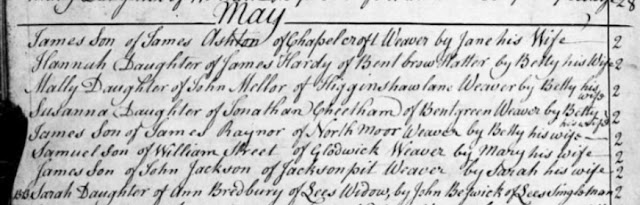 28
May
James Son of James Ashton of Chapelcroft Weaver by Jane his Wife 2
Hannah Daughter of James Hardy of Bent brow Hatter by Betty his Wife 2
Mally Daughter of John Mellor of Higginshaw lane Weaver by Betty his wife 2
Susanna Daughter of Jonathan Cheetham of Bentgreen Weaver by Betty his wife 2
James Son of James Raynor of North Moor Weaver by Betty his wife 2
Samuel Son of William Street of Glodwick Weaver by Mary his wife 2
James Son of John Jackson of Jacksonpit Weaver by Sarah his wife 2
Sarah Daughter of Ann Bredbury of Lees Widow, by John Beswick of Lees Singleman 2